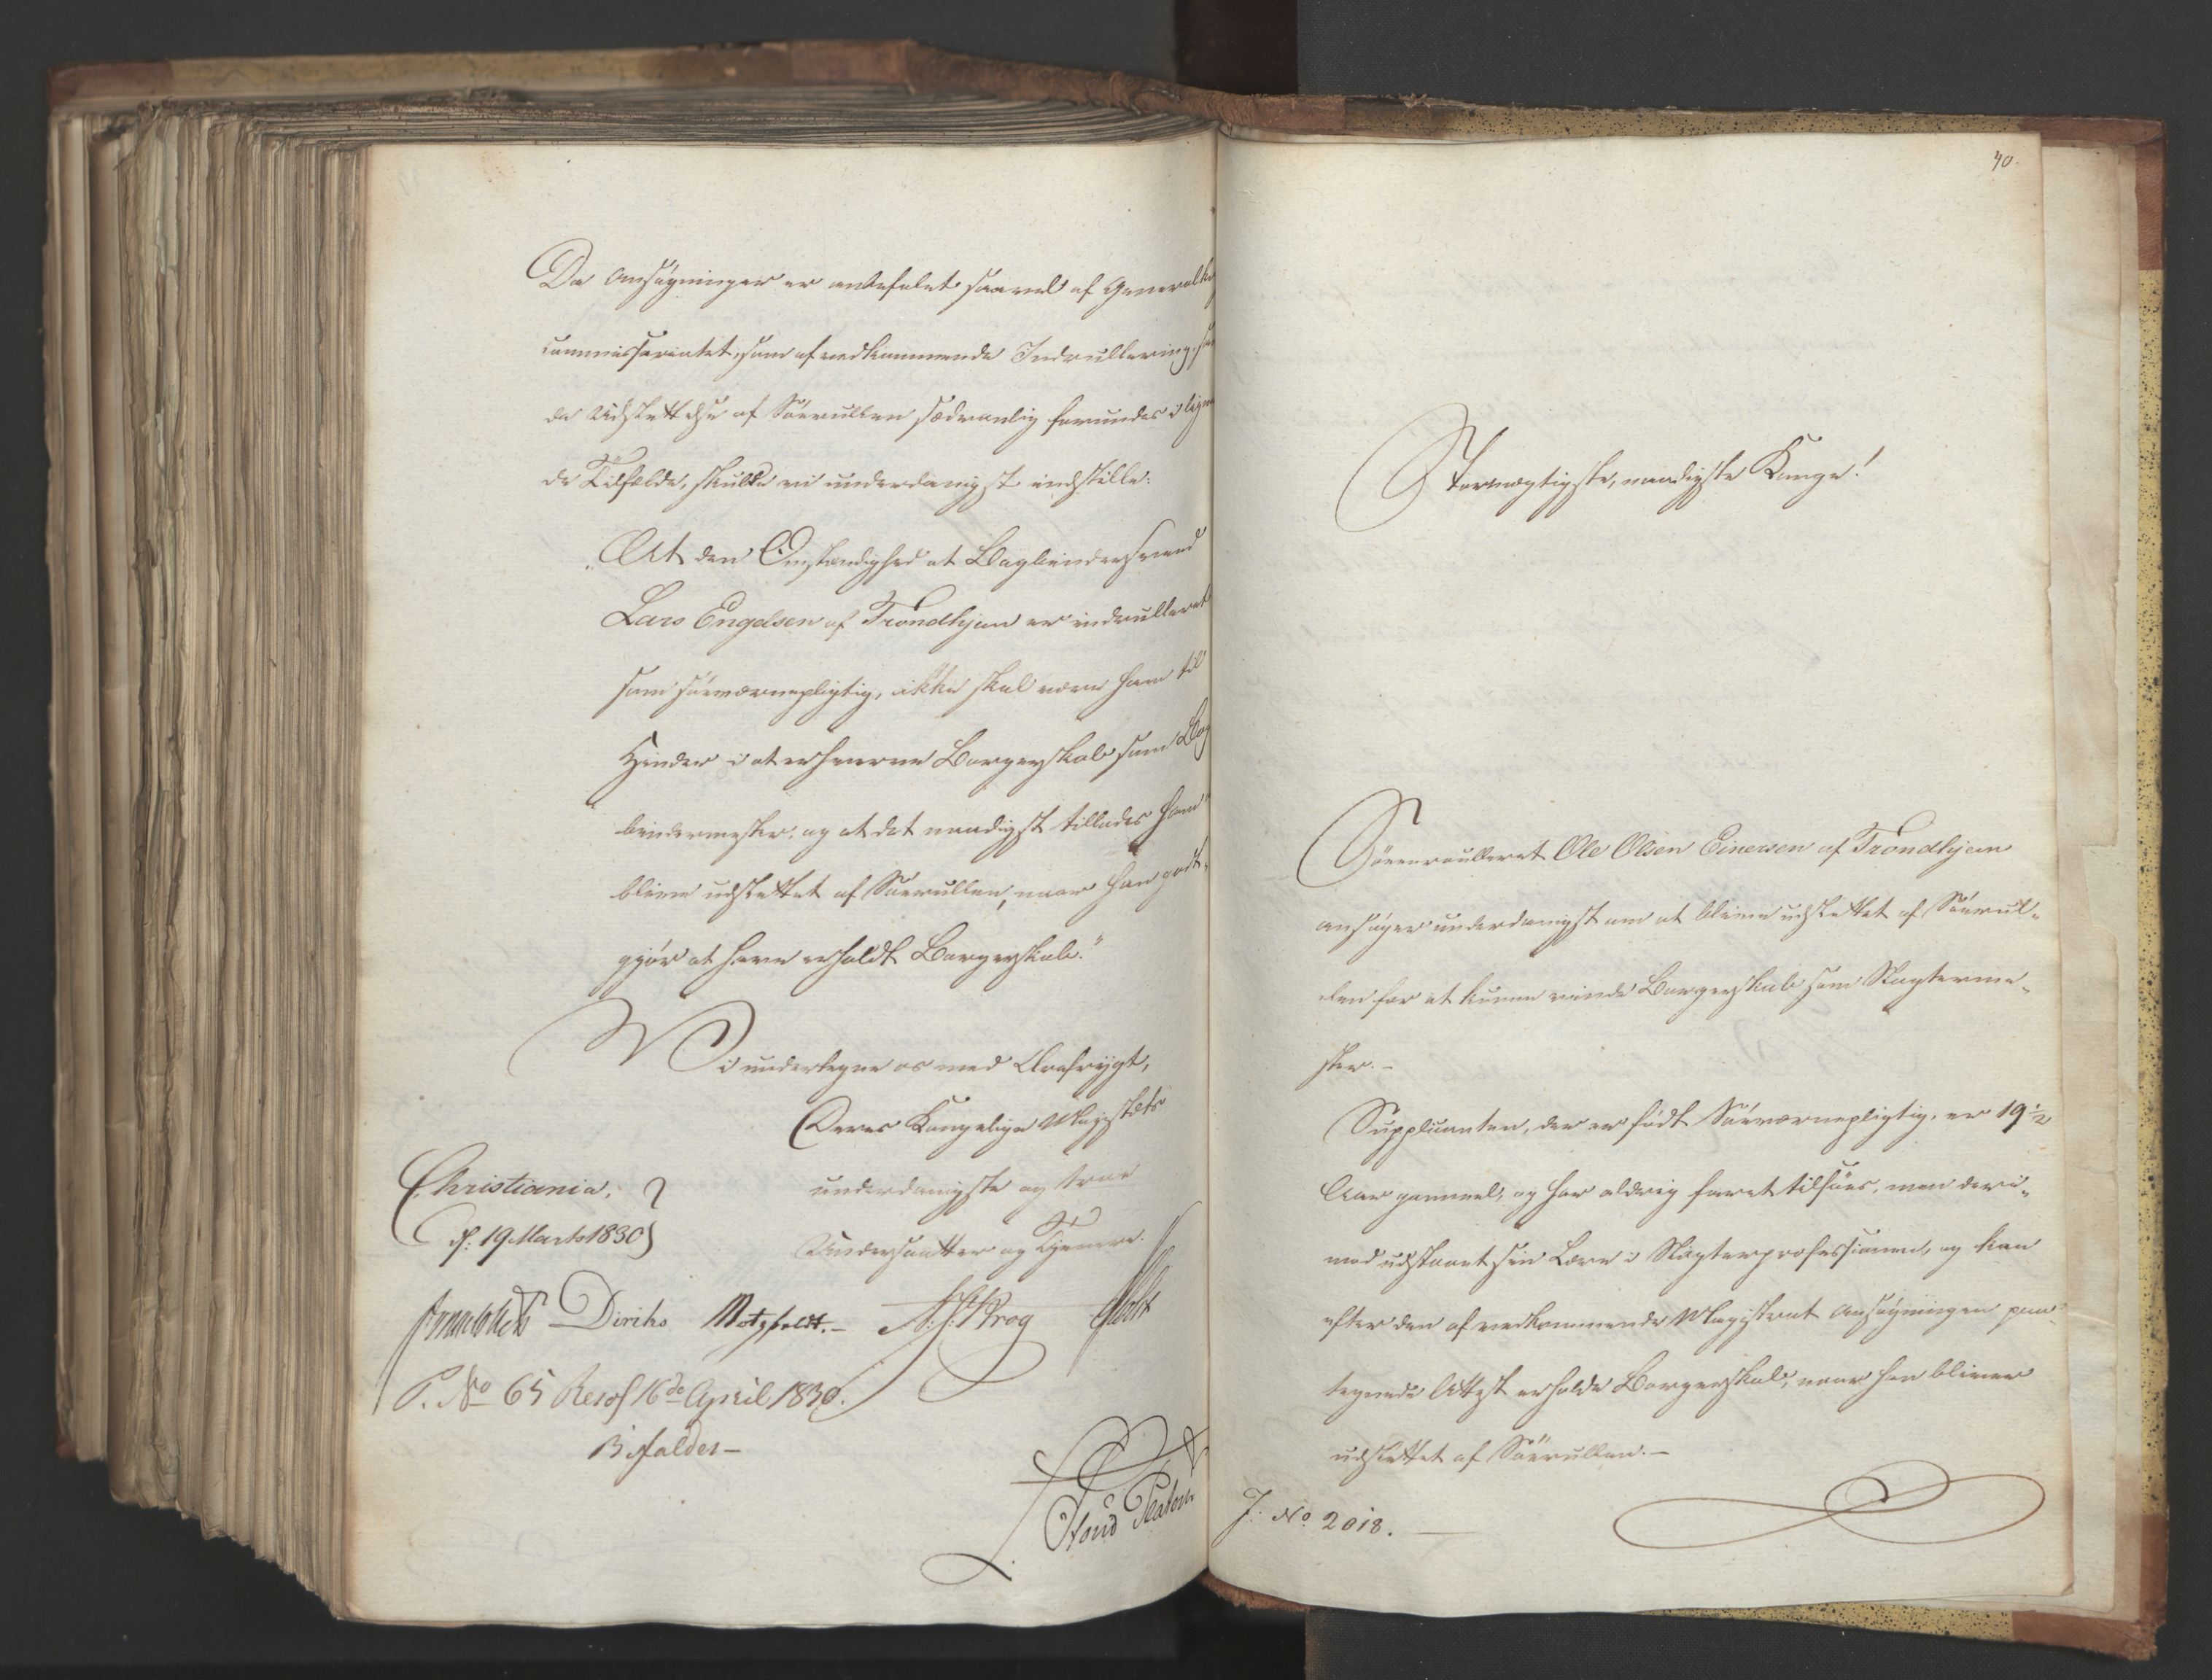 Da Ansøgningen er anbefalet saavel af Generalkrigs
commissariatet, som af vedkommende Indrullering, sam
da Udslettelse af Søerullen sædvanlig forundes i lignen
de Tilfælde, skulde vi underdanigst indstille:
"At den Omstændighed at Bogbindersvend
Lars Engelsen af Trondhjem er indrulleret
som søeværnepligtig, ikke skal være ham til
Hinder i at erhverve Borgerskab som Bog
bindermester, og at det naadigst tillades ham
blive udslettet af Søerullen, naar han godt-
gjør at have erholdt Borgerskab."
Vi undertegne os med Ærefrygt,
Deres Kongelige Majestæts
underdanigste og troe
Undersaatter og Tjenere.
Christiania,
d: 19 Marts 1830
Diriks Motzfeldt.– Krog Holst
P. No 65 Resol 16de April 1830.
Bifaldes –
40.
Stormægtigste, naadigste Konge!
Søeenroulleret Ole Olsen Einersen af Trondhjem
ansøger underdanigst om at blive udslettet af Søerul-
len for at kunne vinde Borgerskab som Slagterme-
ster. –
Supplicanten, der er født Søeværnepligtig, er 19 1/2
Aar gammel, og har aldrig faret tilsøes, men deri-
mod udstaaet sin Lære i Slagterprofessionen, og kan
efter den af vedkommende Magistrat Ansøgningen paa-
tegnede Attest erholde Borgerskab, naar han bliver
udslettet af Søerullen. –
J. No 2018. —